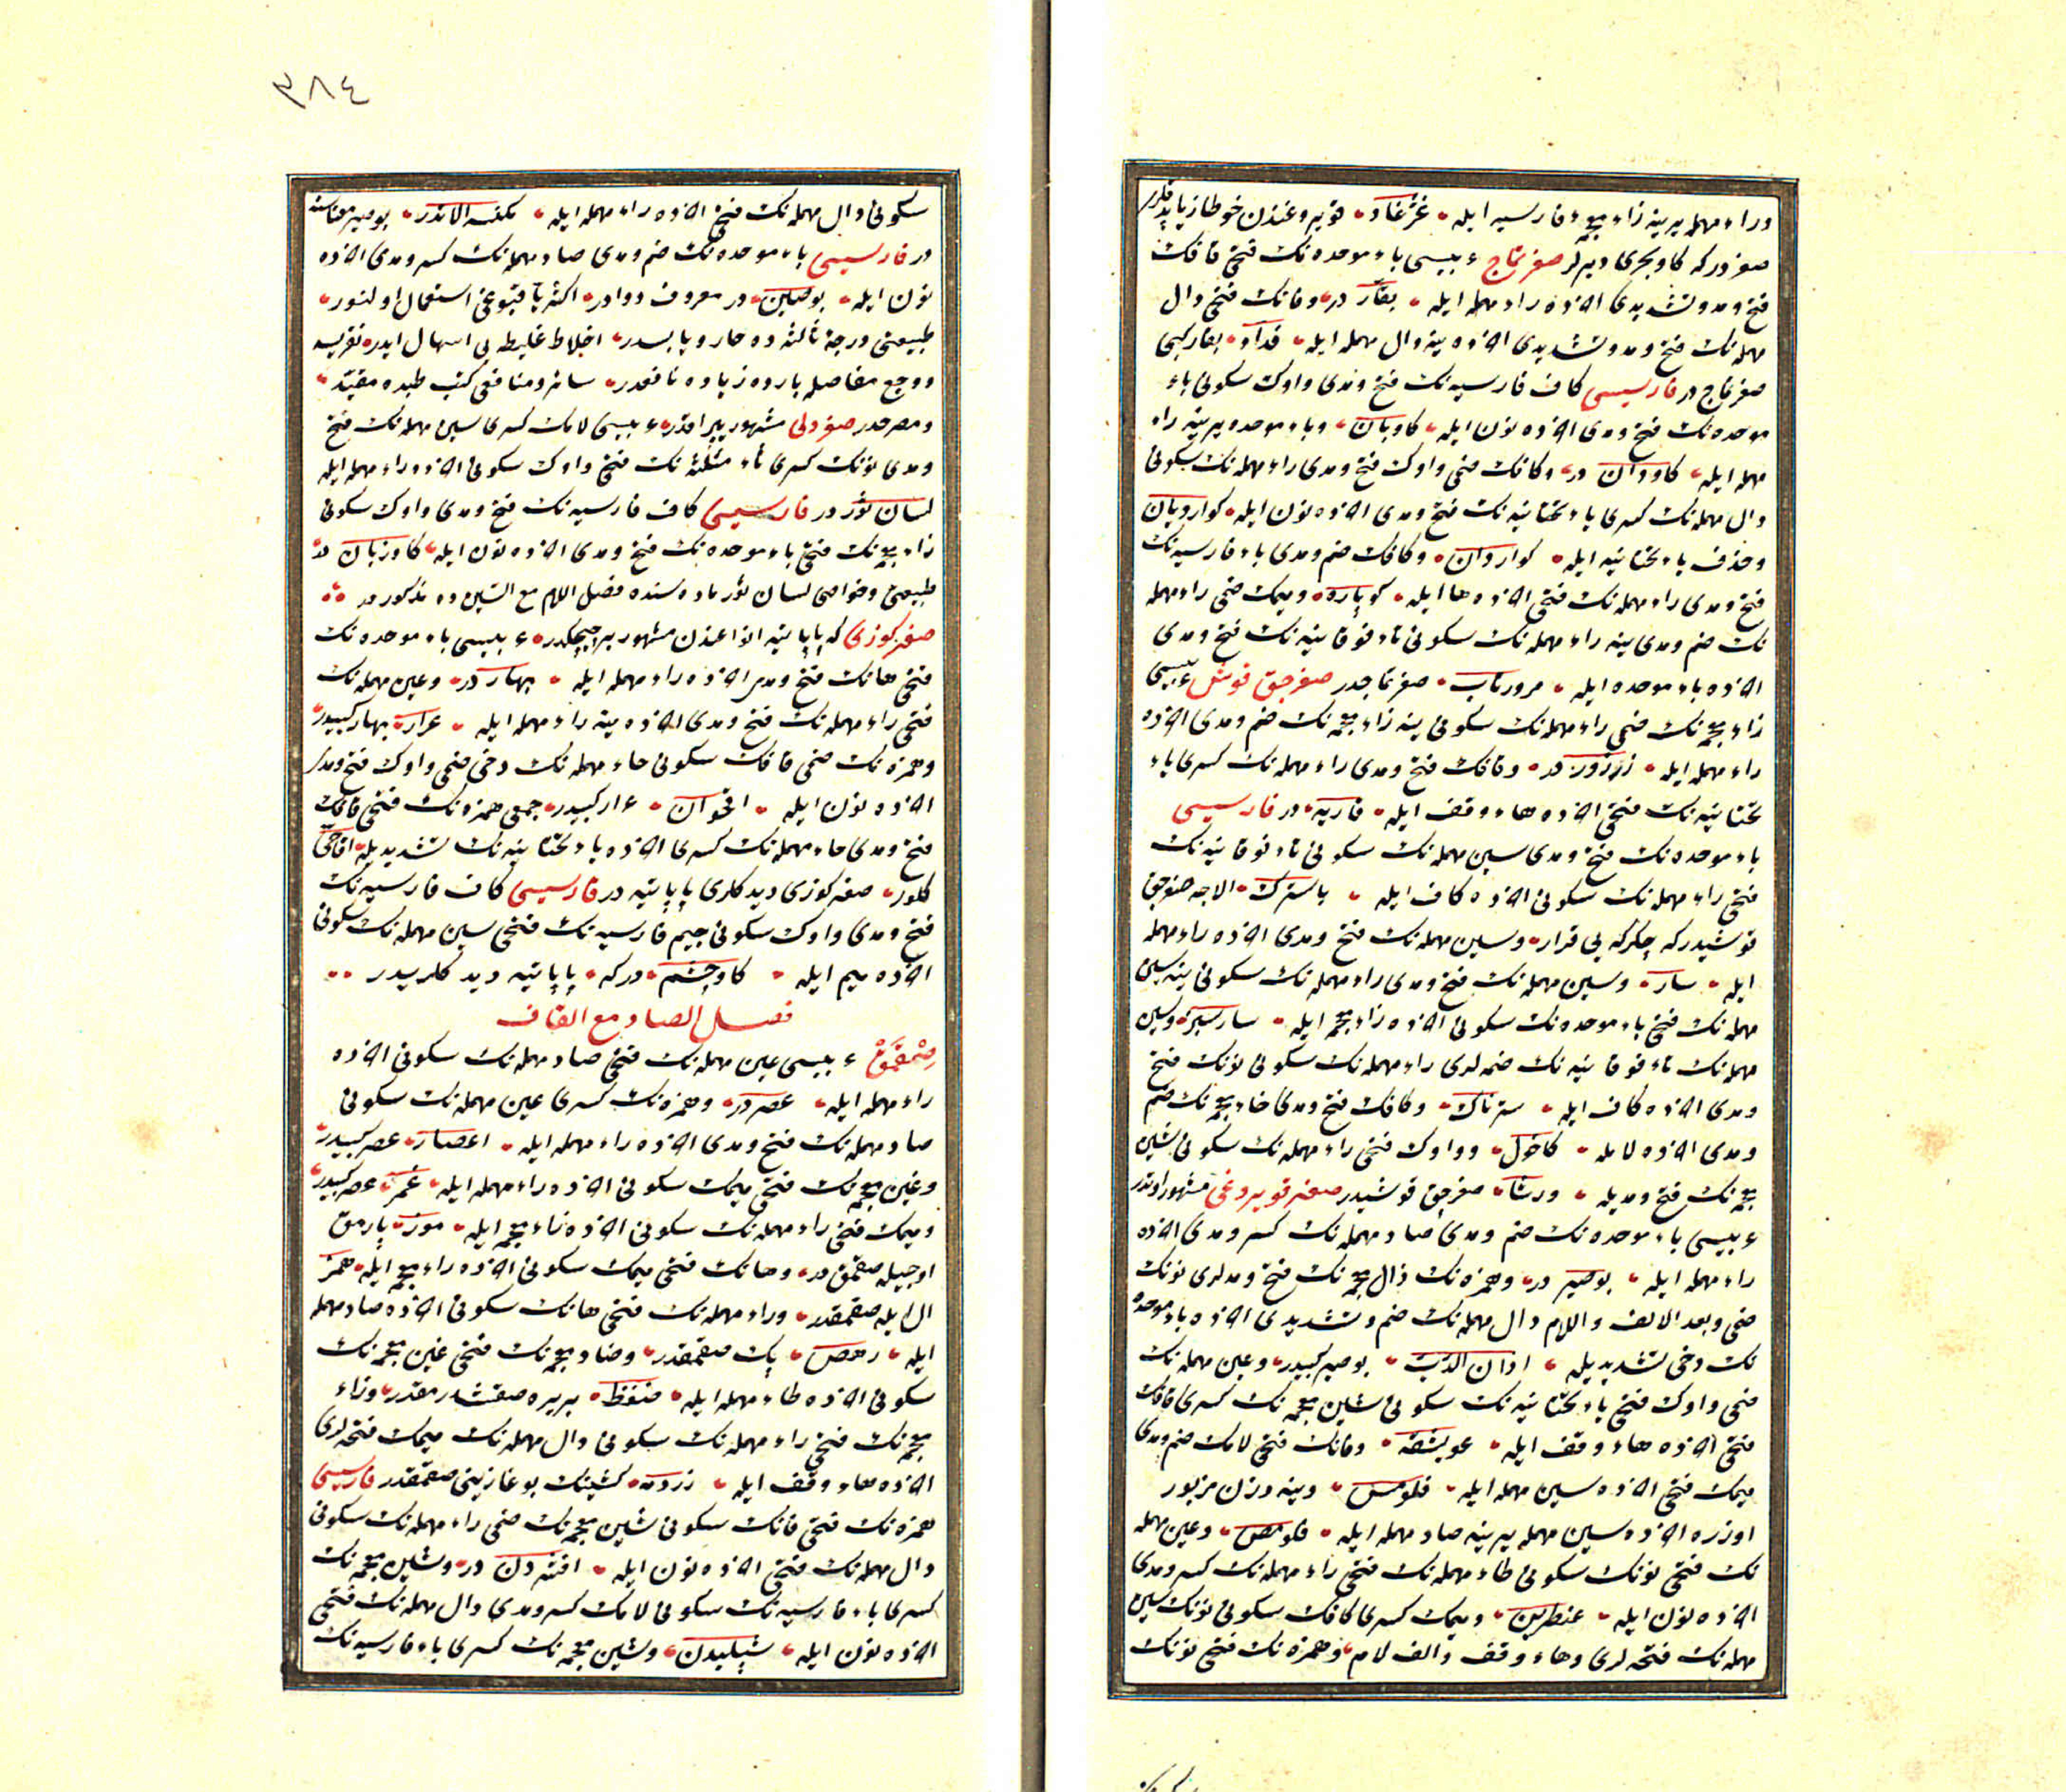 وراء مهمله يرينه زاء معجمۀ فارسيه ايله غژغاو قويروغندن خوطاز ياپدقلرى
صغردركه كاو بحرى ديرلر صغرتماج ع بيسى باء موحده نك فتحى قافك
فتح ومد وتشديدى آخرده راء مهمله ايله بقار در وفانك فتحى دال
مهمله نك فتح ومد وتشديدى آخرده ينه دال مهمله ايله فداد بقار كبى
صغرتماج در فارسيسى كاف فارسيه نك فتح ومدى واوك سكونى باء
موحده نك فتح ومدى آخرده نون ايله كاوبان وباء موحده يرينه راء
مهمله ايله كاوران در وكافك ضمى واوك فتح ومدى راء مهمله نك سكونى
دال مهمله نك كسرى ياء تحتانيه نك فتح ومدى آخرده نون ايله كوارديان
وحذف ياء تحتانيه ايله كواردان وكافك ضم ومدى باء فارسيه نك
فتح ومدى راء مهمله نك فتحى آخرده ها ايله كوپاره وميمك ضمى راء مهمله
نك ضم ومدى ينه راء مهمله نك سكونى تاء فوقانيه نك فتح ومدى
آخرده باء موحده ايله مرورتاب صغرتماجدر صغرجق قوشى ع بيسى
زاء معجمه نك ضمى راء مهمله نك سكونى ينه زاء معجمه نك ضم ومدى آخرده
راء مهمله ايله زرزور در وقافك فتح ومدى راء مهمله نك كسرى ياء
تحتانيه نك فتحى آخرده هاء وقف ايله قاريه در فارسيسى
باء موحده نك فتح ومدى سين مهمله نك سكونى تاء فوقانيه نك
فتحى راء مهمله نك سكونى آخرده كاف ايله باسترك الاجه صغرجق
قوشيدركه چكركه يى قرار وسين مهمله نك فتح ومدى آخرده راء مهمله
ايله سار وسين مهمله نك فتح ومدى راء مهمله نك سكونى ينه سين
مهمله نك فتحى باء موحده نك سكونى آخرده زاء معجمه ايله سارسبز وسين
مهمله نك تاء فوقانيه نك ضمه لرى راء مهمله نك سكونى نونك فتح
ومدى آخرده كاف ايله سترناك وكافك فتح ومدى خاء معجمه نك ضم
ومدى آخرده لامله كاخول وواوك فتحى راء مهمله نك سكونى شين
معجمه نك فتح ومديله ورشا صغرجق قوشيدر صغر قويروغى مشهور اوتدر
ع بيسى باء موحده نك ضم ومدى صاد مهمله نك كسر ومدى آخرده
راء مهمله ايله بوصير در وهمزه نك ذال معجمه نك فتح ومدلرى نونك
ضمى وبعد الالف واللام دال مهمله نك ضم وتشديدى آخرده باء موحده
نك دخى تشديديله اذان الدب بوصير كبيدر وعين مهمله نك
ضمى واوك فتحى ياء تحتانيه نك سكونى شين معجمه نك كسرى قافك
فتحى آخرده هاء وقف ايله عويشقه وقافك فتحى لامك ضم ومدى
ميمك فتحى آخرده سين مهمله ايله قلومس وينه وزن مزبور
اوزره آخرده سين مهمله يرينه صاد مهمله ايله قلومص وعين مهمله
نك فتحى نونك سكونى طاء مهمله نك فتحى راء مهمله نك كسر ومدى
آخرده نون ايله عنطرين وميمك كسرى كافك سكونى نونك سين
مهمله نك فتحه لرى وهاء وقف والف لام وهمزه نك فتحى نونك
٣٨٤
سكونى دال مهمله نك فتحى آخرده راء مهمله ايله مكنسه الاندر بوصير معناسنه
در فارسيسى باء موحده نك ضم ومدى صاد مهمله نك كسر ومدى آخرده
نون ايله بوصين در معروف دوادر اكثريا قتبوغى استعمال اولنور
طبيعتى درجۀ ثالثه ده حار ويابسدر اخلاط غليظه يى اسهال ايدر نقريسه
ووجع مفاصل بارده زياده نافعدر سائر ومنافعى كتب طبده مقيد
ومصرحدر صغر دلى مشهور بپراقدر ع بيسى لامك كسرى سين مهمله نك فتح
ومدى نونك كسرى ثاء مثلثه نك فتحى واوك سكونى آخرده راء مهمله ايله
لسان ثور در فارسيسى كاف فارسيه نك فتح ومدى واوك سكونى
زاء معجمه نك فتحى باء موحده نك فتح ومدى آخرده نون ايله كاوزبان در
طبيعتى وخواصى لسان ثور ماده سنده فصل اللام مع السين ده مذكوردر
صغر كوزى كه پاپاتيه انواعندن مشهور بر چيچكدر ع بيسى باء موحده نك
فتحى هانك فتح ومدى آخرده راء مهمله ايله بهار در وعين مهمله نك
فتحى راء مهمله نك فتح ومدى آخرده ينه راء مهمله ايله عرار بهار كبيدر
وهمزه نك ضمى قافك سكونى حاء مهمله نك دخى ضمى واوك فتح ومدى
آخرده نون ايله اقحوان عرار كبيدر جمعى همزه نك فتحى قافك
فتح ومدى حاء مهمله نك كسرى آخرده ياء تحتانيه نك تشديديله اقاحى
كلور صغر كوزى ديدكلرى پاپاتيه در فارسيسى كاف فارسيه نك
فتح ومدى واوك سكونى جيم فارسيه نك فتحى سين مهمله نك سكونى
آخرده ميم ايله كاوچشم دركه پاپاتيه ديدكلريدر
فصل الصاد مع القاف
صقمق ع بيسى عين مهمله نك فتحى صاد مهمله نك سكونى آخرده
راء مهمله ايله عصر در وهمزه نك كسرى عين مهمله نك سكونى
صاد مهمله نك فتح ومدى آخرده راء مهمله ايله اعصار عصر كبيدر
وغين معجمه نك فتحى ميمك سكونى آخرده راء مهمله ايله غمر عصر كبيدر
وميمك فتحى راء مهمله نك سكونى آخرده زاء معجمه ايله مرز پارمق
اوجيله صقمق در وهانك فتحى ميمك سكونى آخرده زاء معجمه ايله همز
ال ايله صقمقدر وراء مهمله نك فتحى هانك سكونى آخرده صاد مهمله
ايله رهص پك صقمقدر وضاد معجمه نك فتحى غين معجمه نك
سكونى آخرده طاء مهمله ايله ضغط بربره صقشدرمقدر وزاء
معجمه نك فتحى راء مهمله نك سكونى دال مهمله نك ميمك فتحه لرى
آخرده هاء وقف ايله زردمه كشينك بوغازينى صقمقدر فارسيسى
همزه نك فتحى فانك سكونى شين معجمه نك ضمى راء مهمله نك سكونى
دال مهمله نك فتحى آخرده نون ايله افشردن در وشين معجمه نك
كسرى باء فارسيه نك سكونى لامك كسر ومدى دال مهمله نك فتحى
آخرده نون ايله شپليدن وشين معجمه نك كسرى باء فارسيه نك